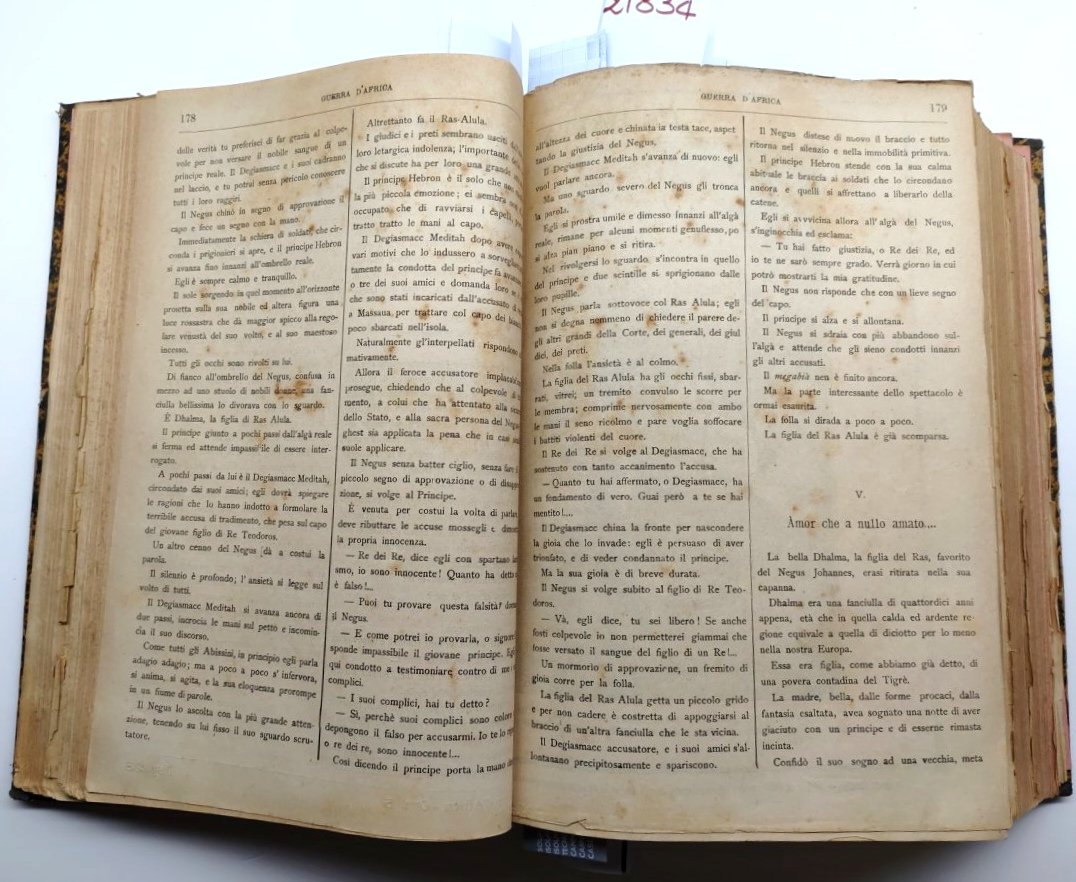 21834
GUERRA D'AFRICA
178
delle verità tu preferisci di far grazia al colpe-
vole per non versare il nobile sangue di un
principe reale. Il Degiasmacc e i suoi cadranno
nel laccio, e tu potrai senza pericolo conoscere
tutti i loro raggiri.
Il Negus chinò in segno di approvazione il
capo e fece un segno con la mano.
Immediatamente la schiera di soldati, che cir-
conda i prigionieri si apre, e il principe Hebron
si avanza fino innanzi all'ombrello reale.
Egli è sempre calmo e tranquillo.
Il sole sorgendo in quel momento all'orizzonte
proietta sulla sua nobile ed altera figura una
luce rossastra che dà maggior spicco alla rego-
lare venustà del suo volto, e al suo maestoso
incesso.
Tutti gli occhi sono rivolti su lui.
Di fianco all'ombrello del Negus, confusa in
mezzo ad uno stuolo di nobili donne, una fan-
ciulla bellissima lo divorava con lo sguardo.
È Dhalma, la figlia di Ras Alula.
Il principe giunto a pochi passi dall'algà reale
si ferma ed attende impassibile di essere inter-
rogato.
A pochi passi da lui è il Degiasmacc Meditah,
circondato dai suoi amici; egli dovrà spiegare
le ragioni che lo hanno indotto a formolare la
terribile accusa di tradimento, che pesa sul capo
del giovane figlio di Re Teodoros.
Un altro cenno del Negus dà a costui la
parola.
Il silenzio è profondo; l'ansietà si legge sul
volto di tutti.
Il Degiasmacc Meditah si avanza ancora di
due passi, incrocia le mani sul petto e incomin-
cia il suo discorso.
Come tutti gli Abissini, in principio egli parla
adagio adagio; ma a poco a poco s'infervora,
si anima, si agita, e la sua eloquenza prorompe
in un fiume di parole.
Il Negus lo ascolta con la più grande atten-
zione, tenendo su lui fisso il suo sguardo scru-
tatore.
Altrettanto fa il Ras-Alula.
I giudici e i preti sembrano usciti
loro letargica indolenza; l'importante
che si discute ha per loro una grande
Il principe Hebron è il solo che non
la più piccola emozione; ei sembra
occupato che di ravviarsi i capelli
tratto tratto le mani al capo.
Il Degiasmacc Meditah dopo avere
vari motivi che lo indussero a
tamente la condotta del principe fa
o tre dei suoi amici e domanda loro se
che sono stati incaricati dall'accusato
a Massaua per trattare col capo dei
poco sbarcati nell'isola.
Naturalmente gl'interpellati rispondono
mativamente.
Allora il feroce accusatore
prosegue, chiedendo che al colpevole
mento, a colui che ha attentato alla
dello Stato, e alla sacra persona del
ghest sia applicata la pena che in casi
suole applicare.
Il Negus senza batter ciglio, senza fare
piccolo segno di approvazione o di
zione, si volge al Principe.
È venuta per costui la volta di
deve ributtare le accuse mossegli e
la propria innocenza.
— Re dei Re, dice egli con spartano
smo, io sono innocente! Quanto ha detto
è falso!...
— Puoi tu provare questa falsità?
il Negus.
— E come potrei io provarla, o signore
sponde impassibile il giovane principe.
qui condotto a testimoniare contro di me i
complici.
— I suoi complici, hai tu detto?
— Sì, perchè suoi complici sono coloro
depongono il falso per accusarmi. Io te lo
o re dei re, sono innocente!...
Così dicendo il principe porta la mano
GUERRA D'AFRICA
179
all'altezza del cuore e chinata la testa tace, aspet
tando la giustizia del Negus.
Il Degiasmacc Meditah s'avanza di nuovo: egli
vuol parlare ancora.
Ma uno sguardo severo del Negus gli tronca
la parola.
Egli si prostra umile e dimesso innanzi all'algà
reale, rimane per alcuni momenti genuflesso, po
si alza pian piano e si ritira.
Nel rivolgersi lo sguardo s'incontra in quello
del principe e due scintille si sprigionano dalle
loro pupille.
Il Negus parla sottovoce col Ras Alula; egli
non si degna nemmeno di chiedere il parere de-
gli altri grandi della Corte, dei generali, dei giul
dici, dei preti.
Nella folla l'ansietà è al colmo.
La figlia del Ras Alula ha gli occhi fissi, sbar-
rati, vitrei; un tremito convulso le scorre per
le membra; comprime nervosamente con ambo
le mani il seno ricolmo e pare voglia soffocare
i battiti violenti del cuore.
Il Re dei Re si volge al Degiasmacc, che ha
sostenuto con tanto accanimento l'accusa.
— Quanto tu hai affermato, o Degiasmacc, ha
un fondamento di vero. Guai però a te se hai
mentito!....
Il Degiasmacc china la fronte per nascondere
la gioia che lo invade: egli è persuaso di aver
trionfato, e di veder condannato il principe.
Ma la sua gioia è di breve durata.
Il Negus si volge subito al figlio di Re Teo-
doros.
— Và, egli dice, tu sei libero! Se anche
fosti colpevole io non permetterei giammai che
fosse versato il sangue del figlio di un Re!...
Un mormorio di approvazione, un fremito di
gioia corre per la folla.
La figlia del Ras Alula getta un piccolo grido
e per non cadere è costretta di appoggiarsi al
braccio di un'altra fanciulla che le sta vicina.
Il Degiasmacc accusatore, e i suoi amici s'al-
lontanano precipitosamente e spariscono.
Il Negus distese di nuovo il braccio e tutto
ritorna nel silenzio e nella immobilità primitiva.
Il principe Hebron stende con la sua calma
abituale le braccia ai soldati che lo circondano
ancora e quelli si affrettano a liberarlo della
catene.
Egli si avvicina allora all'algà del Negus,
s'inginocchia ed esclama:
— Tu hai fatto giustizia, o Re dei Re, ed
io te ne sarò sempre grato. Verrà giorno in cui
potrò mostrarti la mia gratitudine.
Il Negus non risponde che con un lieve segno
del capo.
Il principe si alza e si allontana.
Il Negus si sdraia con più abbandono sul-
l'algà e attende che gli sieno condotti innanzi
gli altri accusati.
Il megabià non è finito ancora.
Ma la parte interessante dello spettacolo è
ormai esaurita.
La folla si dirada a poco a poco.
La figlia del Ras Alula è già scomparsa.
V.
Amor che a nullo amato....
La bella Dhalma, la figlia del Ras, favorito
del Negus Johannes, erasi ritirata nella sua
capanna.
Dhalma era una fanciulla di quattordici anni
appena, età che in quella calda ed ardente re-
gione equivale a quella di diciotto per lo meno
nella nostra Europa.
Essa era figlia, come abbiamo già detto, di
una povera contadina del Tigrè.
La madre, bella, dalle forme procaci, dalla
fantasia esaltata, avea sognato una notte di aver
giaciuto con un principe e di esserne rimasta
incinta.
Confidò il suo sogno ad una vecchia, meta